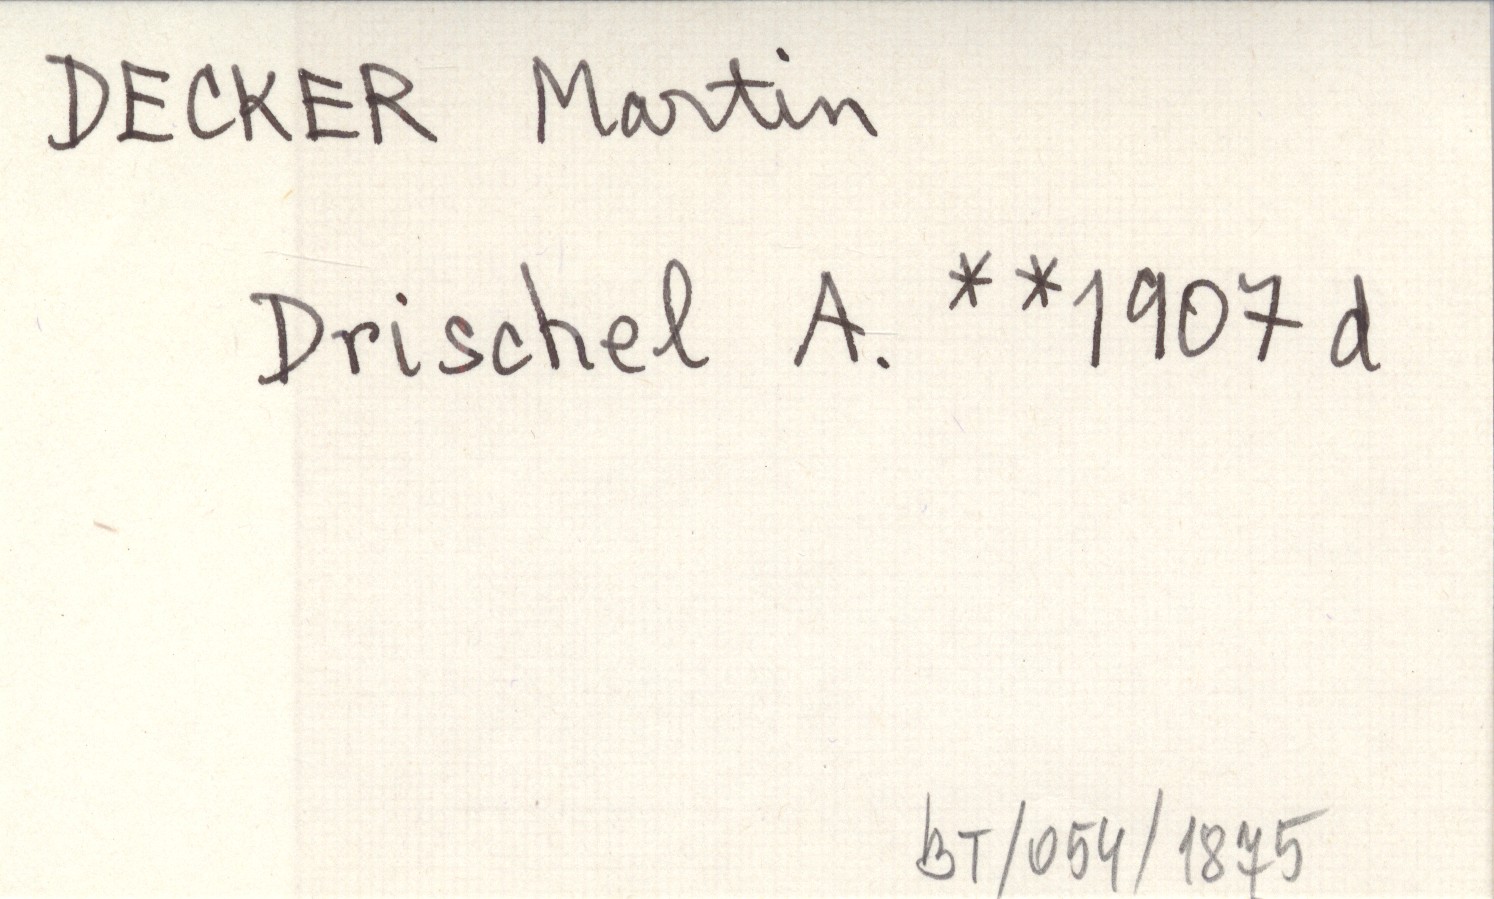 DECKER Martin
Drischel A. **1907 d
BT/054/1875